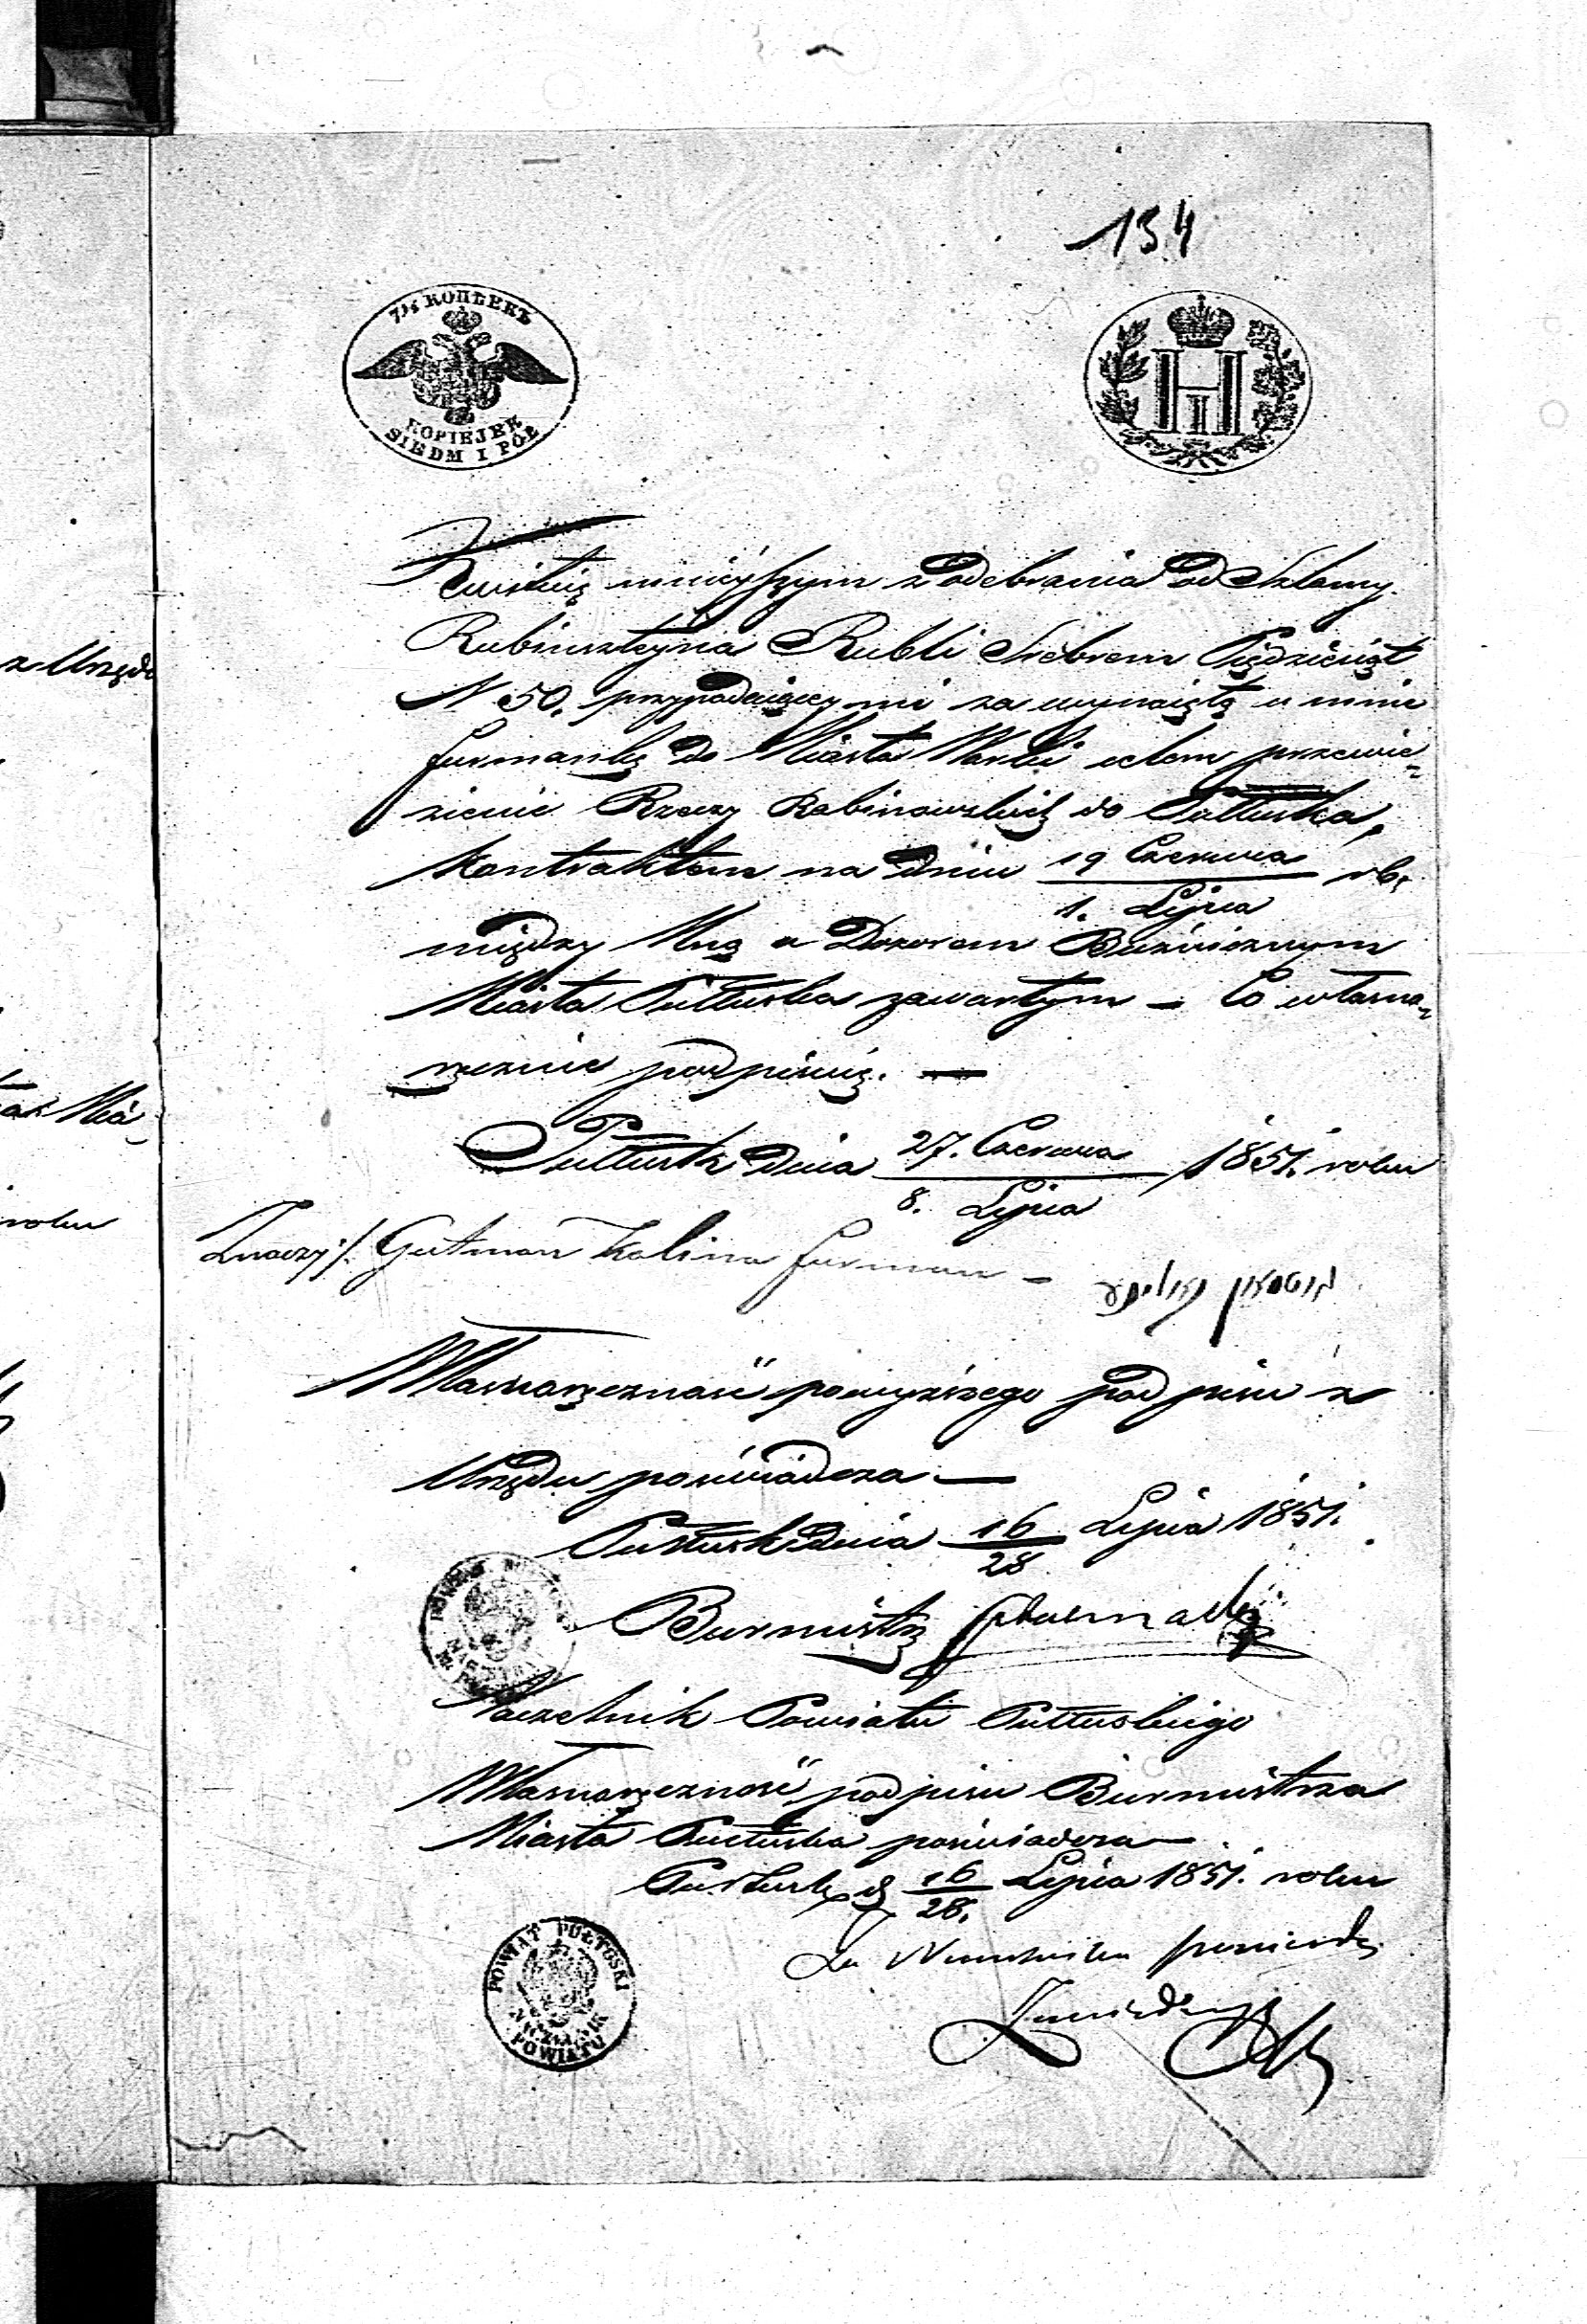 z Urzędu
roku
134
7½ КОПѢЕКЪ
KOPIEJEK
SIEDM I PÓŁ
Н I
Kwituię ninieyszym z odebrania od Szlamy
Rubinszteyna Rubli Srebrem Pięćdziesiąt
N 50. przypadaiącey mi za wynaiętą u mnie
furmankę do Miasta celem przewie-
zienie Rzeczy Rabinowskich do Pułtuska,
Kontraktem na dniu 19 Czerwca / 1. Lipca rb.
między Mną a Dozorem Bużnicznym
Miasta Pułtuska zawartym — Co własno-
ręcznie podpisuię. —
Pułtusk dnia 27. Czerwca / 8. Lipca 1851. roku
Znaczy /: Gutman Kalina furman —
גוטמאן קאלינע
Własnoręczność powyższego podpisu z
Urzędu poświadcza —
Pułtusk dnia 16/28 Lipca 1851.
Burmistrz
Naczelnik Powiatu Pułtuskiego
Własnoręczność podpisu Burmistrza
Miasta Pułtuska poświadcza —
Pułtusk d. 16/28. Lipca 1851. roku
POWIAT PUŁTUSKI
NACZELNIK
POWIATU
Za Naczelnika